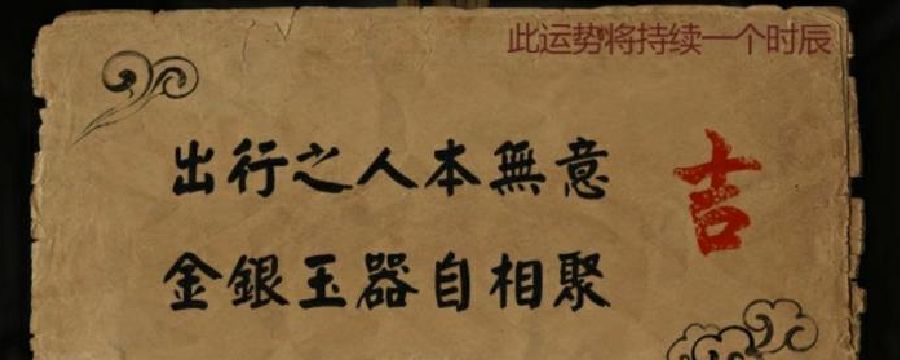 此运势将持续一个时辰
出行之人本無意
吉
金銀玉器自相聚